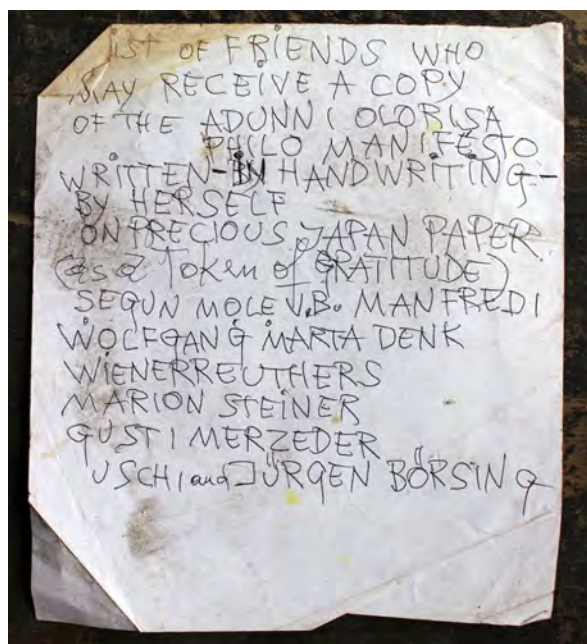 LIST OF FRIENDS WHO
MAY RECEIVE A COPY
OF THE ADUNNI OLORISA
PHILO MANIFESTO
WRITTEN-IN HANDWRITING-
BY HERSELF
ON PRECIOUS JAPAN PAPER
(as a Token of GRATITUDE)
SEGUN MOLE V.B. MANFREDI
WOLFGANG MARTA DENK
WIENERREUTHERS
MARION STEINER
GUSTI MERZEDER
USCHI and JÜRGEN BÖRSING